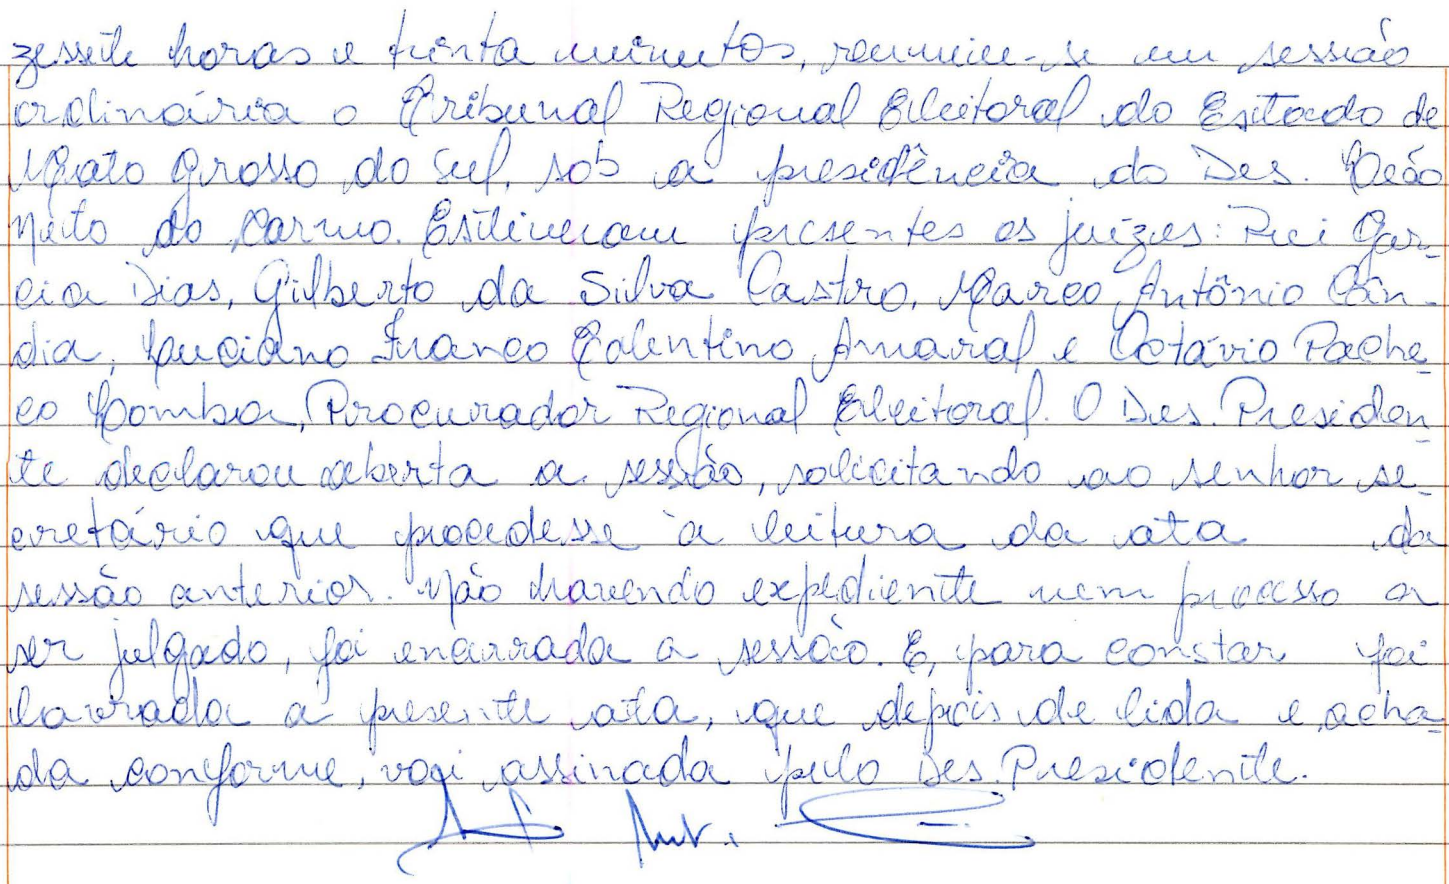 zessete horas e trinta minutos, reuniu-se em sessão
ordinária o Tribunal Regional Eleitoral do Estado de
Mato Grosso do Sul, sob a presidência do Des. Leão
Neto do Carmo. Estiveram presentes os juízes: Rui Gar-
cia Dias, Gilberto da Silva Castro, Marco Antônio Cân-
dia, Luciano Franco Tolentino Amaral e Octávio Pache-
co Lomba, Procurador Regional Eleitoral. O Des. Presiden-
te declarou aberta a sessão, solicitando ao senhor se-
cretário que procedesse à leitura da ata da
sessão anterior. Não havendo expediente nem processo a
ser julgado, foi encerrada a sessão. E, para constar foi
lavrada a presente ata, que depois de lida e acha-
da conforme, vai assinada pelo Des. Presidente.